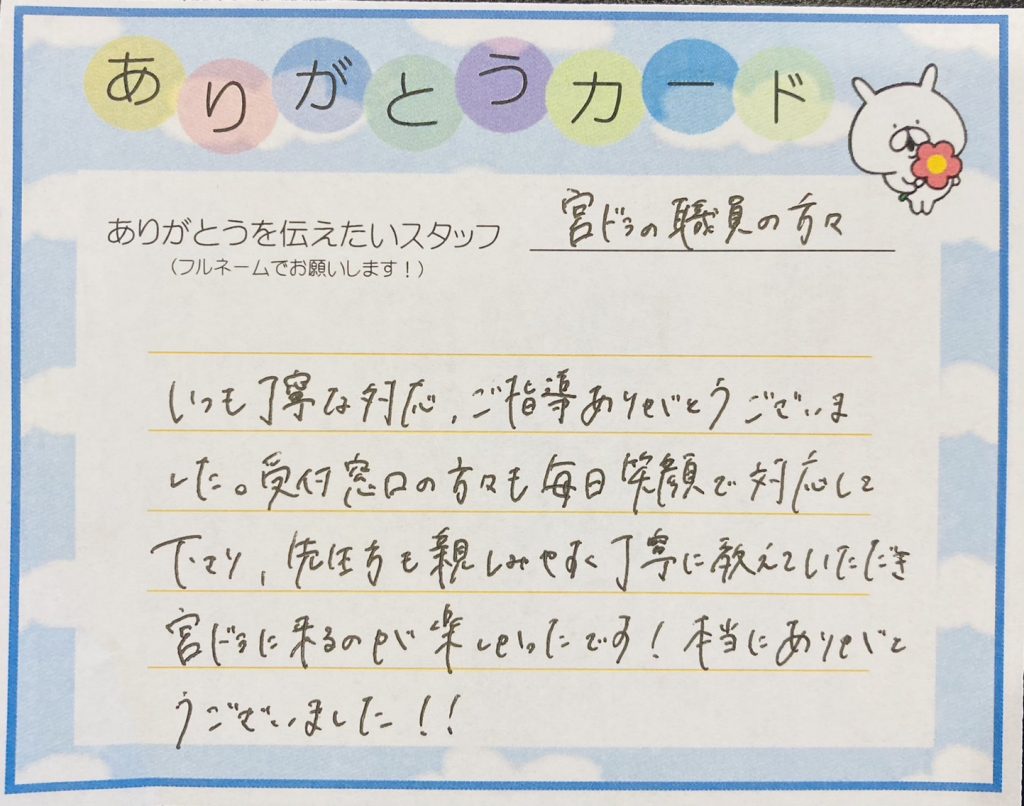 ありがとうカード
ありがとうを伝えたいスタッフ 宮ドラの職員の方々
（フルネームでお願いします！）
いつも丁寧な対応、ご指導ありがとうございま
した。受付窓口の方々も毎日笑顔で対応して
下さり、先生方も親しみやすく丁寧に教えていただき
宮ドラに来るのが楽しかったです！本当にありがと
うございました！！